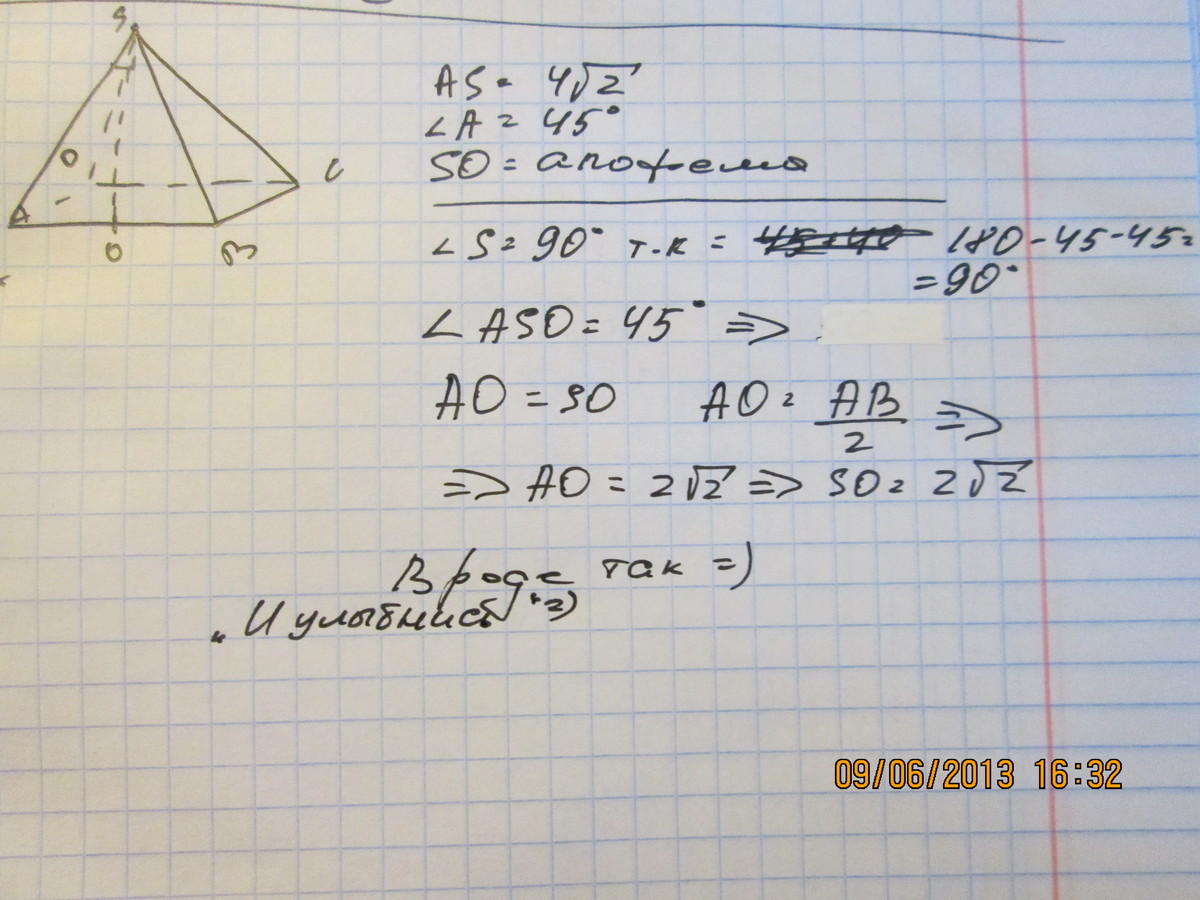 S
D
C
A
O
B
AS = 4√2
∠A = 45°
SO = апофема
∠S = 90° т.к = 180 - 45 - 45 =
= 90°
∠ASO = 45° =>
AO = SO AO = AB/2 =>
=> AO = 2√2 => SO = 2√2
Вроде так =)
„И улыбнись" =)
09/06/2013 16:32